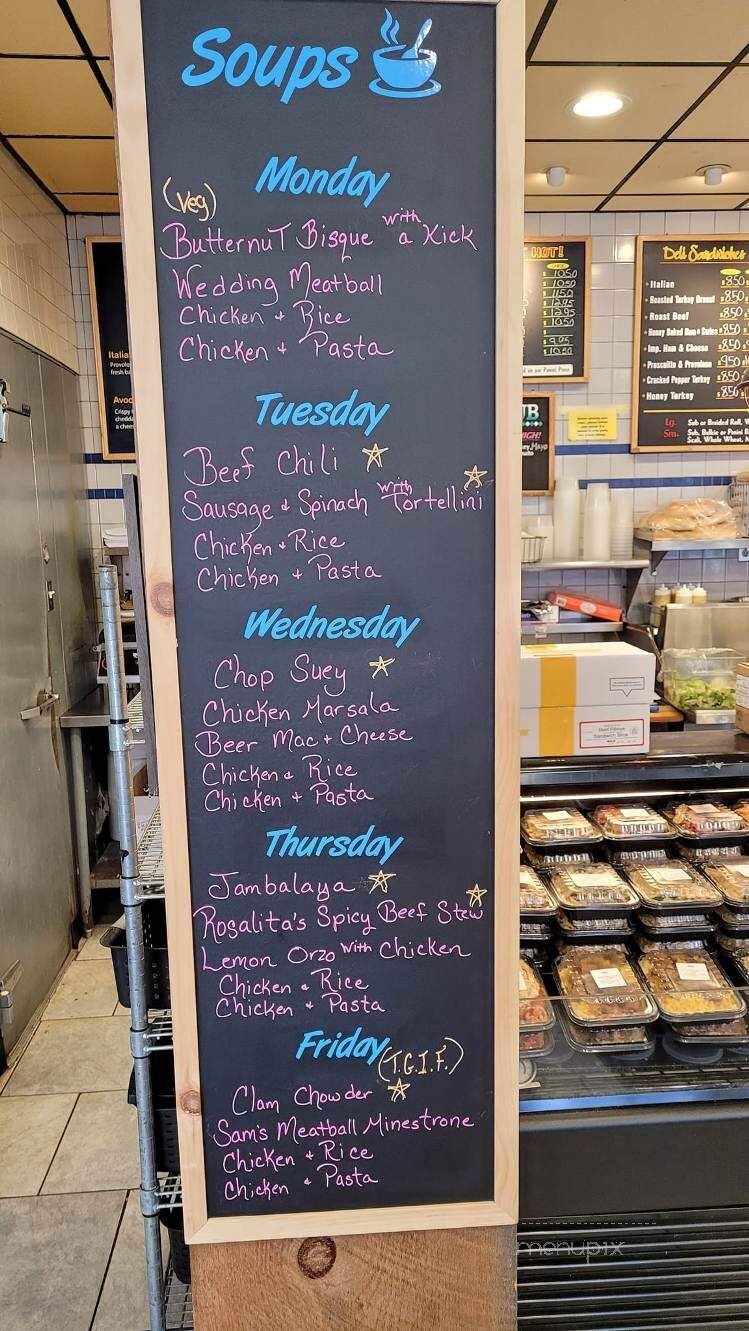 Soups
Monday
(Veg)
Butternut Bisque with a Kick
Wedding Meatball
Chicken + Rice
Chicken + Pasta
Tuesday
Beef Chili ☆
Sausage + Spinach with Tortellini ☆
Chicken + Rice
Chicken + Pasta
Wednesday
Chop Suey ☆
Chicken Marsala
Beer Mac + Cheese
Chicken + Rice
Chicken + Pasta
Thursday
Jambalaya ☆
Rosalita's Spicy Beef Stew ☆
Lemon Orzo with Chicken
Chicken + Rice
Chicken + Pasta
Friday (T.G.I.F.)
Clam Chowder ☆
Sam's Meatball Minestrone
Chicken + Rice
Chicken + Pasta
HOT!
1050
1050
1150
1295
1295
1050
1050
Deli Sandwiches
Italian 850
Roasted Turkey Breast 850
Roast Beef 850
Honey Baked Ham & Swiss 850
Imp. Ham & Cheese 850
Prosciutto & Provolone 950
Cracked Pepper Turkey 850
Honey Turkey 850
Lg.
Sm.
UB
HIGH!
Mayo
Italia
Provolo
fresh ba
Avoc
Crispy
chedda
a chees
menupix